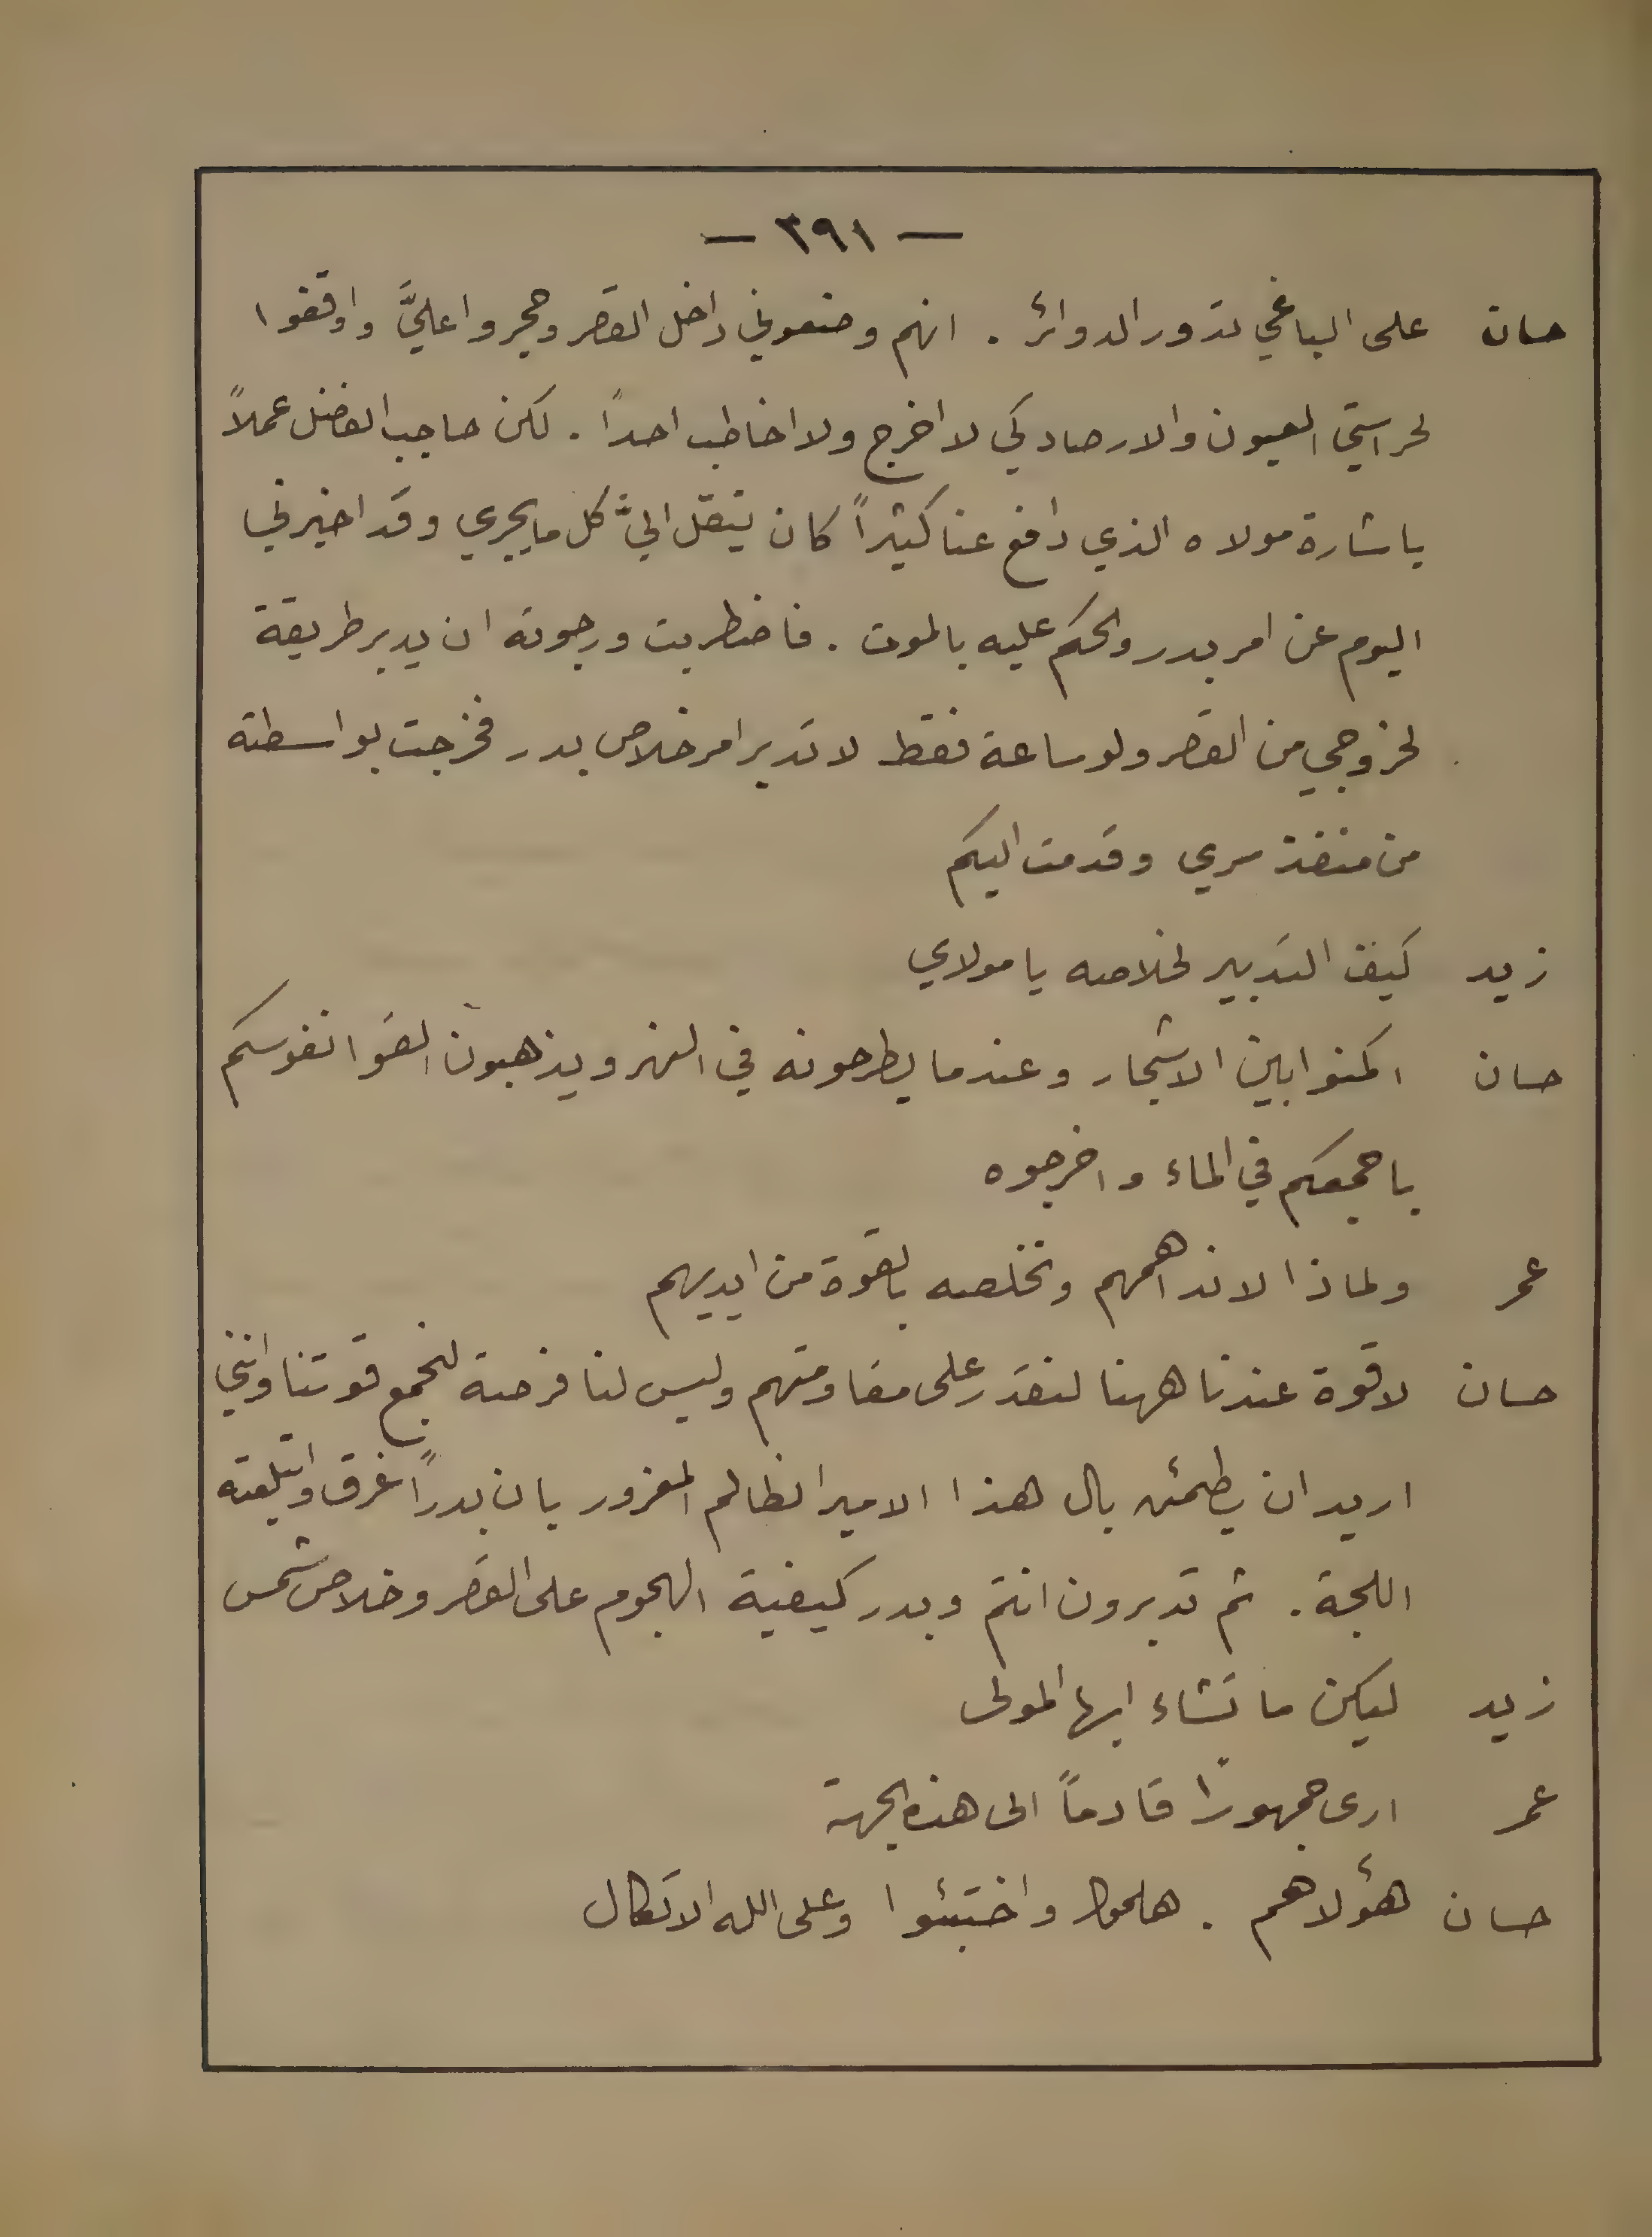 — ٢٩١ —
حسان على الباغي تدور الدوائر . انهم وضعوني داخل القصر وحجروا عليَّ واوقفوا
لحراستي العيون والارصاد كي لا اخرج ولا اخاطب احداً . لكن حاجب الفضل عملاً
باشارة مولاه الذي دافع عنا كثيراً كان ينقل اليَّ كل ما يجري وقد اخبرني
اليوم عن امر بدر والحكم عليه بالموت . فاضطربت ورجوته ان يدبر طريقة
لخروجي من القصر ولو ساعة فقط لاتدبر امر خلاص بدر فخرجت بواسطته
من منفذ سري وقدمت اليكم
زيد كيف التدبير لخلاصه يا مولاي
حسان اكمنوا بين الاشجار وعندما يطرحونه في النهر ويذهبون القوا نفوسكم
باجمعكم في الماء واخرجوه
عمر ولماذا لا نداهمهم ونخلصه بالقوة من ايديهم
حسان لا قوة عندنا ههنا لنقدر على مقاومتهم وليس لنا فرصة لنجمع قوتنا وانني
اريد ان يطمئن بال هذا الامير الظالم المغرور بان بدراً غرق وابتلعته
اللجة . ثم تدبرون انتم وبدر كيفية الهجوم على القصر وخلاص شمس
زيد ليكن ما تشاء ايها المولى
عمر ارى جمهوراً قادماً الى هذه الجهة
حسان هؤلاهم . هلموا واختبئوا وعلى الله الاتكال